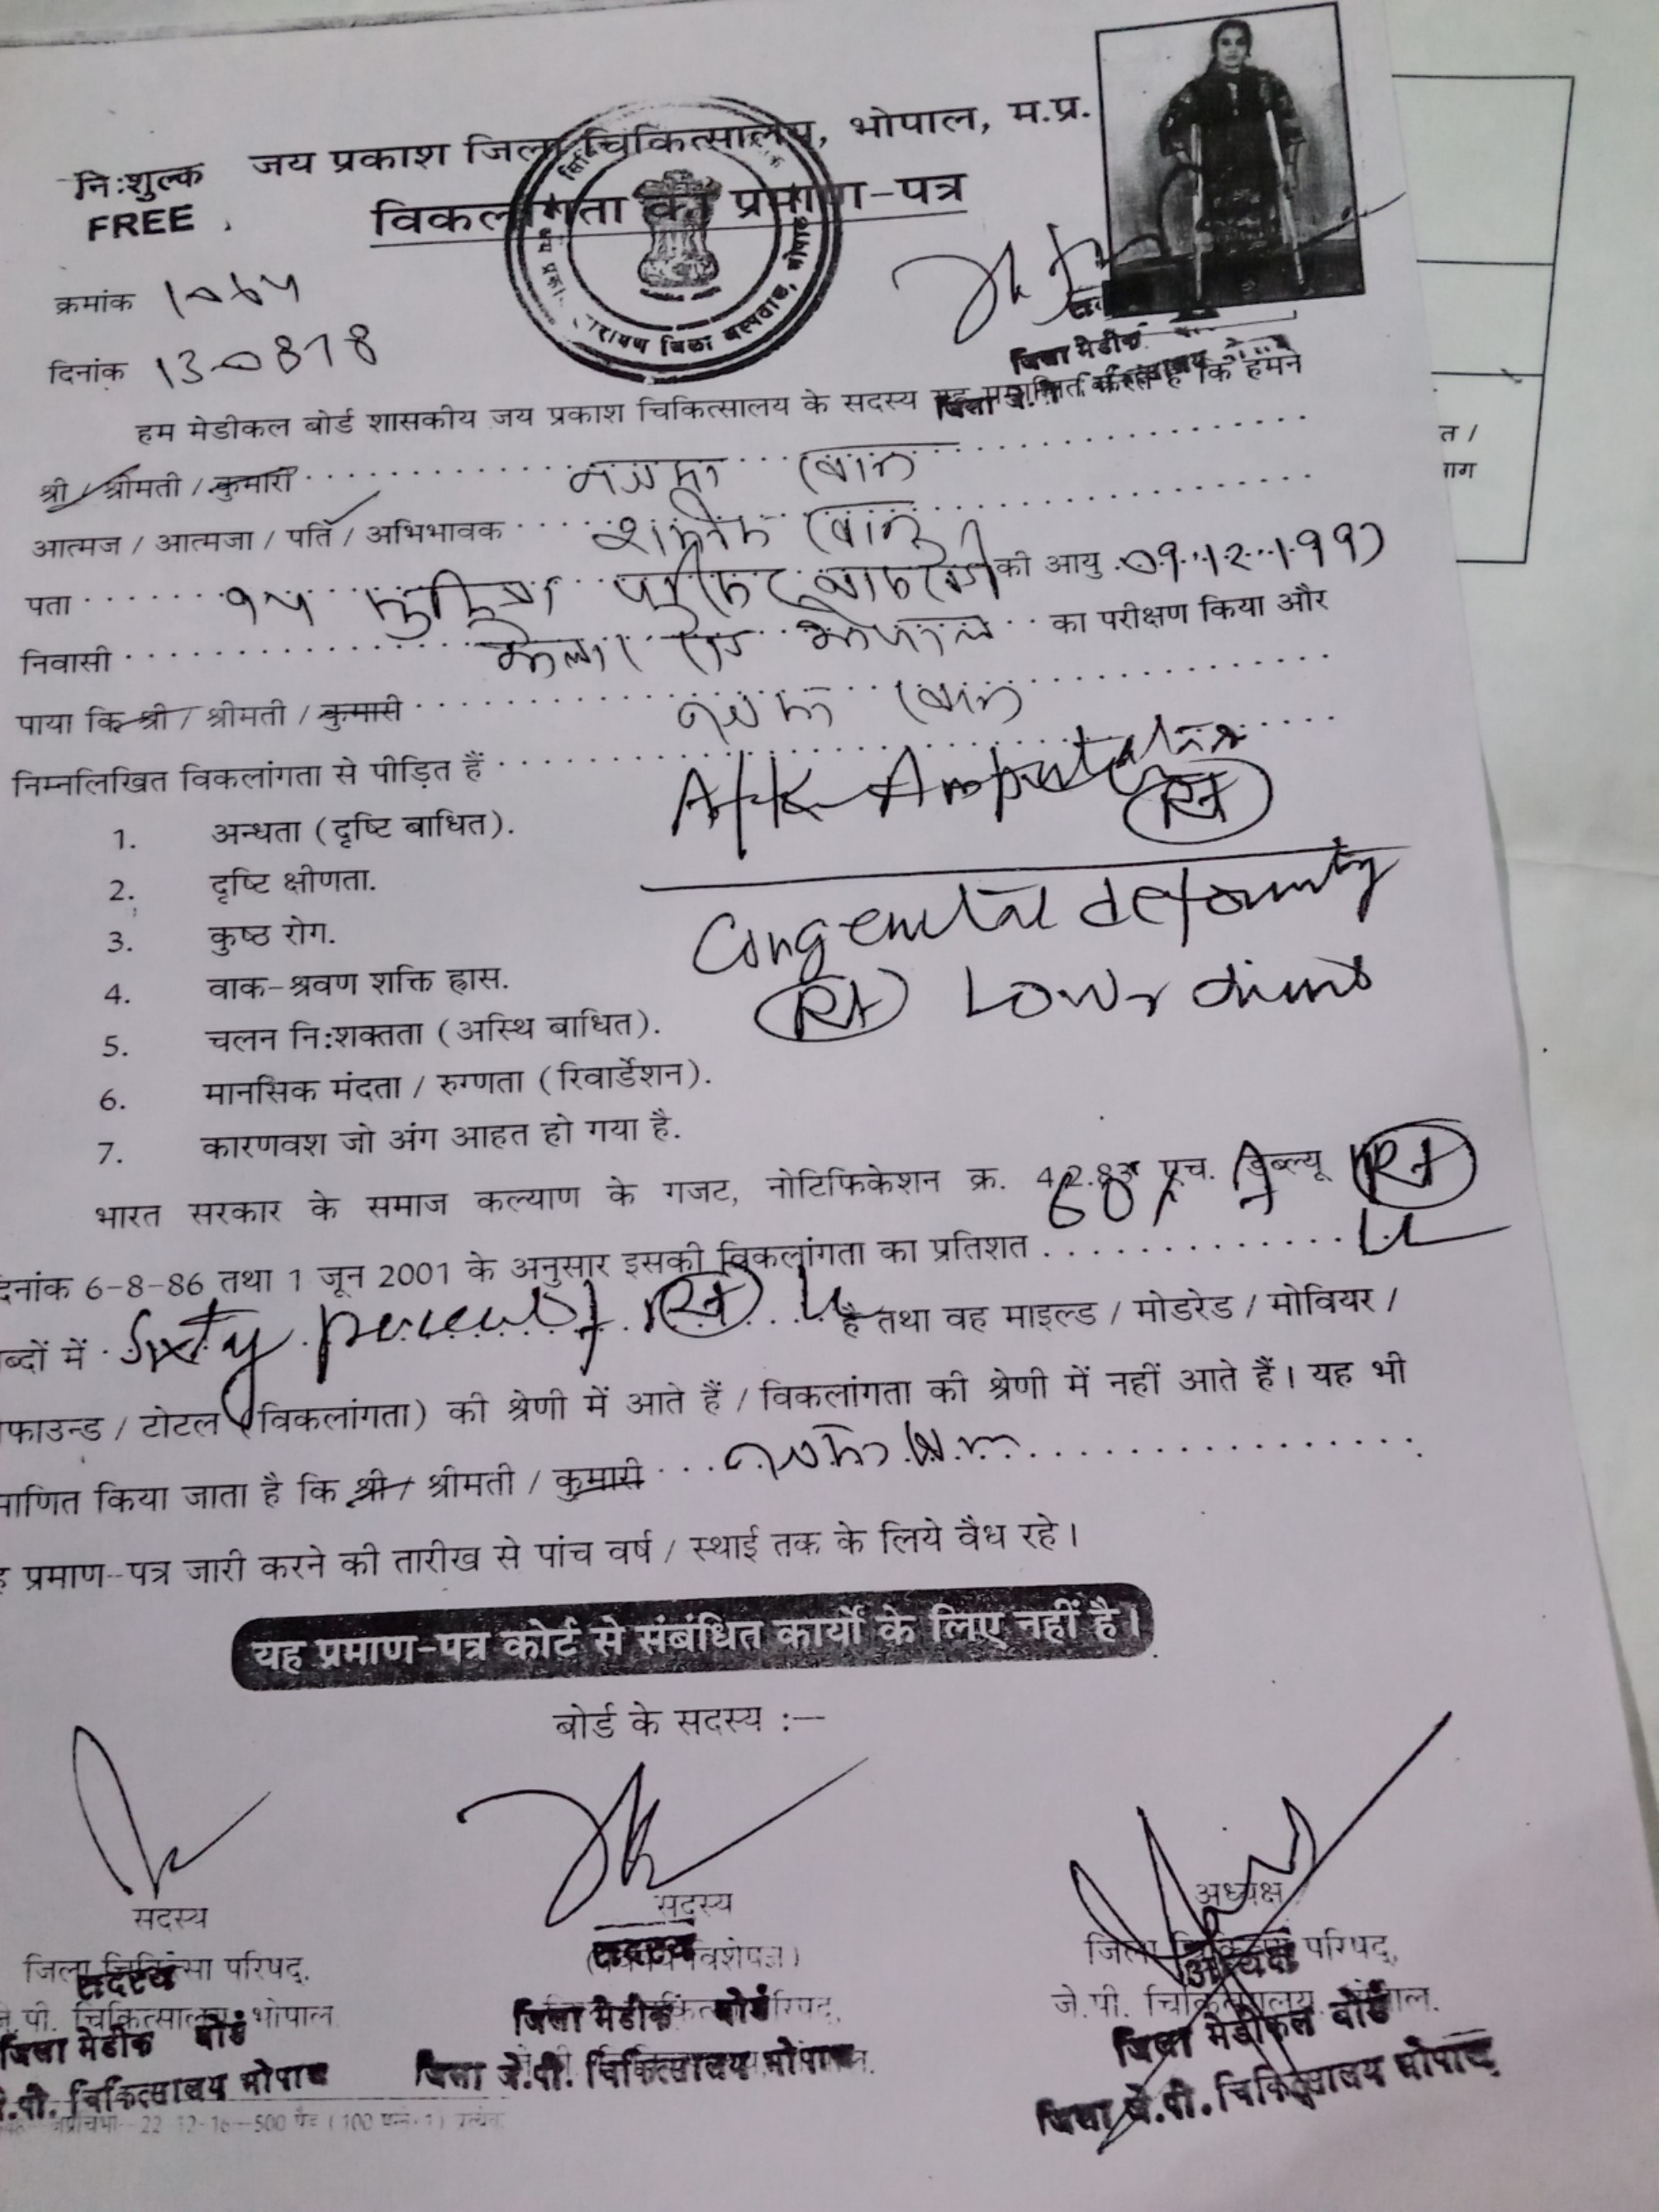 जय प्रकाश जिला चिकित्सालय, भोपाल, म.प्र.
नि:शुल्क
FREE
विकलांगता का प्रमाण-पत्र
क्रमांक
दिनांक 130818
हम मेडीकल बोर्ड शासकीय जय प्रकाश चिकित्सालय के सदस्य यह प्रमाणित करते हैं कि हमने
श्री / श्रीमती / कुमारी नजमा खान
आत्मज / आत्मजा / पति / अभिभावक
पता की आयु 09.12.1997
निवासी कोलार रोड भोपाल का परीक्षण किया और
पाया कि श्री / श्रीमती / कुमारी नजमा खान
निम्नलिखित विकलांगता से पीड़ित हैं
A/K Amputation
Rt
1. अन्धता (दृष्टि बाधित).
2. दृष्टि क्षीणता.
Congenital deformity
3. कुष्ठ रोग.
Rt Lower Limb
4. वाक-श्रवण शक्ति ह्रास.
5. चलन नि:शक्तता (अस्थि बाधित).
6. मानसिक मंदता / रुग्णता (रिवार्डेशन).
7. कारणवश जो अंग आहत हो गया है.
भारत सरकार के समाज कल्याण के गजट, नोटिफिकेशन क्र. एच. डब्ल्यू Rt
दिनांक 6-8-86 तथा 1 जून 2001 के अनुसार इसकी विकलांगता का प्रतिशत 60% LL
शब्दों में Sixty percent Rt LL है तथा वह माइल्ड / मोडरेड / मोवियर /
प्रोफाउन्ड / टोटल (विकलांगता) की श्रेणी में आते हैं / विकलांगता की श्रेणी में नहीं आते हैं। यह भी
प्रमाणित किया जाता है कि श्री / श्रीमती / कुमारी नजमा खान
यह प्रमाण-पत्र जारी करने की तारीख से पांच वर्ष / स्थाई तक के लिये वैध रहे।
यह प्रमाण-पत्र कोर्ट से संबंधित कार्यों के लिए नहीं है।
बोर्ड के सदस्य :—
सदस्य सदस्य अध्यक्ष
जिला चिकित्सा परिषद्, जिला चिकित्सा परिषद्,
जे.पी. चिकित्सालय भोपाल जे.पी. चिकित्सालय भोपाल.
सदस्य सदस्य अध्यक्ष
जिला मेडीकल बोर्ड जिला मेडीकल बोर्ड जिला मेडीकल बोर्ड
जे.पी. चिकित्सालय भोपाल जिला जे.पी. चिकित्सालय भोपाल जिला जे.पी. चिकित्सालय भोपाल